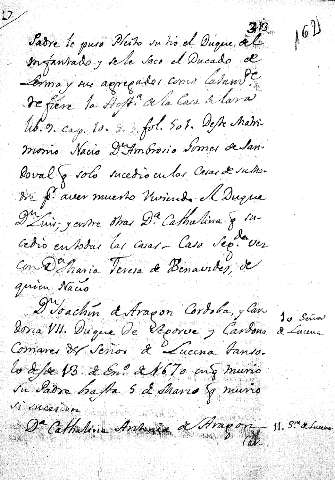 313
1621
Padre le puso Pleito su tio el Duque del
Infantado, y se le saco el Ducado de
Lerma y sus agregados como
refiere la Histª. de la Casa de Lara
lib. 7. cap. 10. fol. 501. Deste Matri-
monio Nacio Dn. Ambrosio Gomes de San-
doval q solo sucedio en las Casas de su Ma-
dre pr. aver muerto Viviendo el Duque
Dn. Luis; y entre otras Dª. Cathalina q su-
cedio en todas las casas. Caso Segda. ver
con Dª. Maria Teresa de Benavides, de
quien Nacio
Dn. Joachin de Aragon Cordoba, y Car-
dona VII. Duque de Segorve y Cardona
Comares 10 Señor de Lucena
de Lucena
lo desde 13. de Enº. de 1670 en q murio
su Padre hasta 5 de Marzo q murio
sin sucesion
Dª. Cathalina Antonia de Aragon 11. Sª. de Lucena